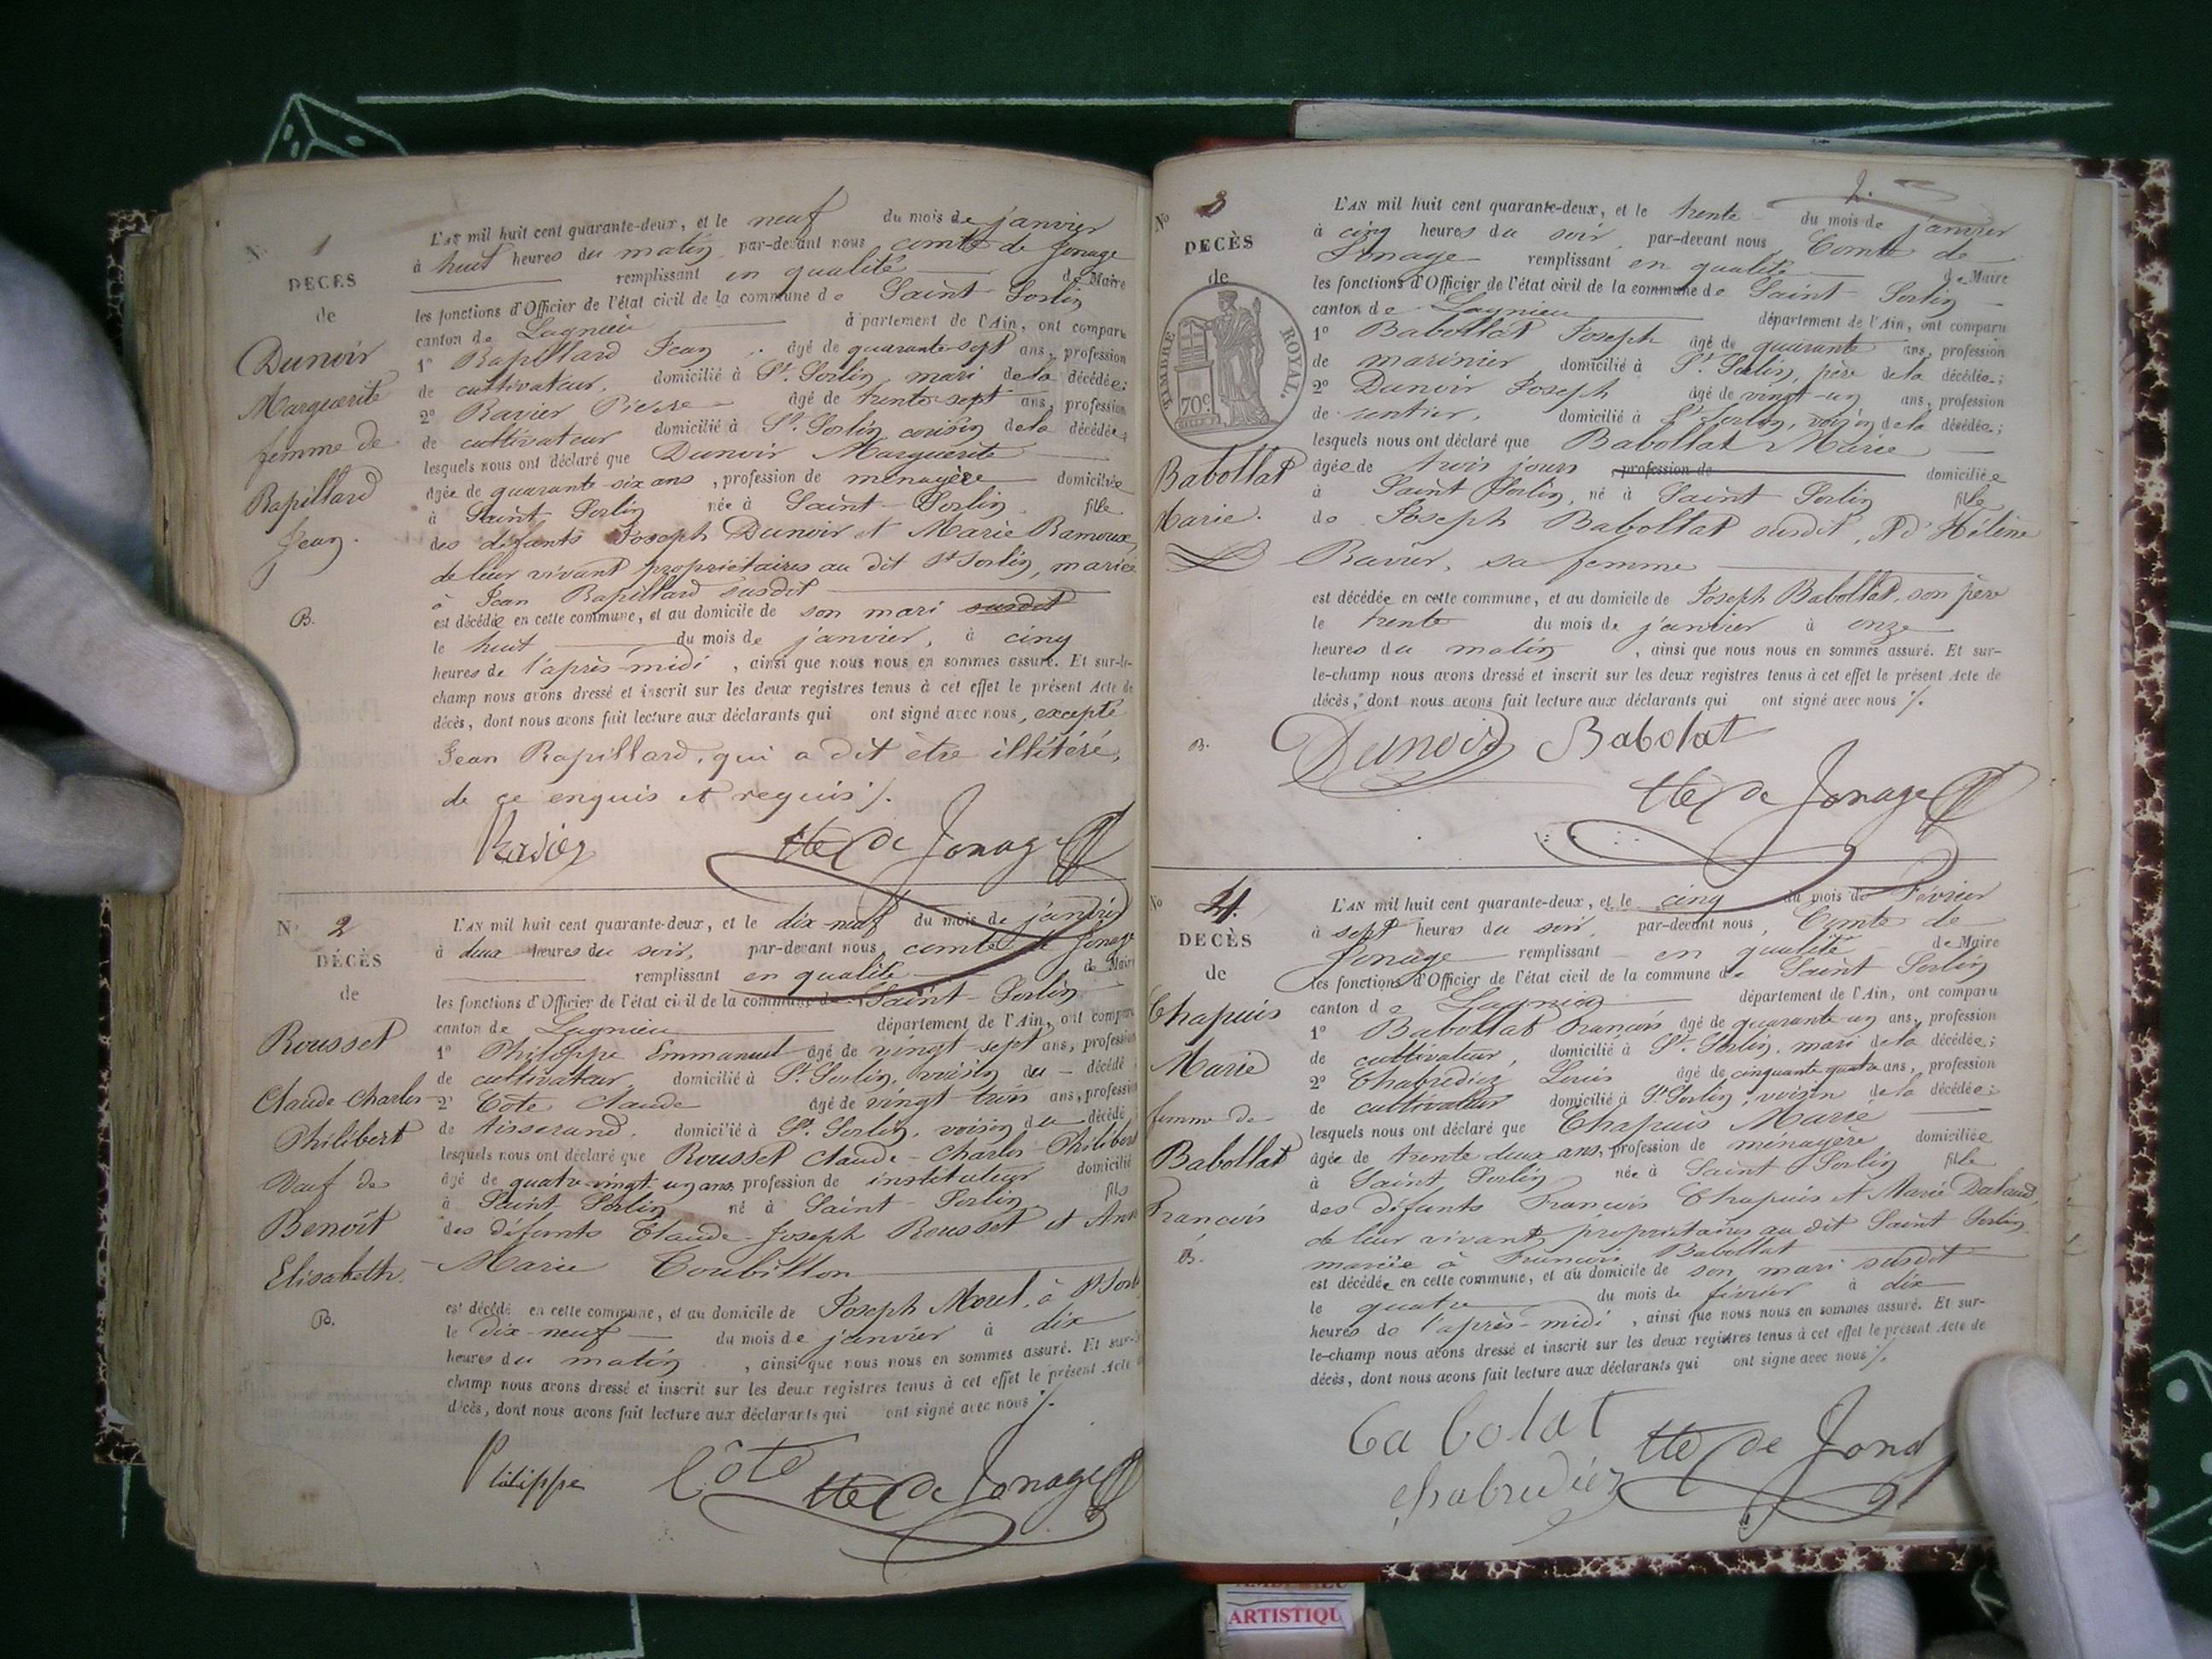 N° 1
DÉCÈS
de
Dunoir
Marguerite
femme de
Rapillard
Jean.
B.
L'AN mil huit cent quarante-deux, et le neuf du mois de janvier
à huit heures du matin, par-devant nous comte de Jonage
remplissant en qualité de Maire
les fonctions d'Officier de l'état civil de la commune de Saint-Sorlin
canton de Lagnieu département de l'Ain, ont comparu
1° Rapillard Jean, âgé de quarante-sept ans, profession
de cultivateur, domicilié à St. Sorlin, mari de la décédée;
2° Ravier Pierre âgé de trente-sept ans, profession
de cultivateur domicilié à St. Sorlin cousin de la décédée;
lesquels nous ont déclaré que Dunoir Marguerite
âgée de quarante-six ans, profession de ménagère domiciliée
à Saint Sorlin née à Saint-Sorlin fille
des défunts Joseph Dunoir et Marie Ramoux,
de leur vivant propriétaires au dit St Sorlin, mariée
à Jean Rapillard susdit
est décédée en cette commune, et au domicile de son mari susdit
le huit du mois de janvier, à cinq
heures de l'après-midi, ainsi que nous nous en sommes assuré. Et sur-le-
champ nous avons dressé et inscrit sur les deux registres tenus à cet effet le présent Acte de
décès, dont nous avons fait lecture aux déclarants qui ont signé avec nous, excepté
Jean Rapillard, qui a dit être illitéré,
de ce enquis et requis ./.
Ravier Cte de Jonage
N° 2
DÉCÈS
de
Rousset
Claude-Charles-
Philibert
Veuf de
Benoît
Elisabeth.
B.
L'AN mil huit cent quarante-deux, et le dix-neuf du mois de janvier
à deux heures du soir, par-devant nous, comte de Jonage
remplissant en qualité de Maire
les fonctions d'Officier de l'état civil de la commune de Saint-Sorlin
canton de Lagnieu département de l'Ain, ont comparu
1° Philippe Emmanuel âgé de vingt-sept ans, profession
de cultivateur, domicilié à St. Sorlin, voisin du décédé
2° Côte Claude âgé de vingt-trois ans, profession
de tisserand, domicilié à St. Sorlin, voisin du décédé
lesquels nous ont déclaré que Rousset Claude-Charles-Philibert
âgé de quatre-vingt-un ans, profession de instituteur domicilié
à Saint Sorlin né à Saint-Sorlin fils
des défunts Claude-Joseph Rousset et
Marie
est décédé en cette commune, et au domicile de Joseph Morel, à St Sorl
le dix-neuf du mois de janvier à dix
heures du matin, ainsi que nous nous en sommes assuré. Et sur-le-
champ nous avons dressé et inscrit sur les deux registres tenus à cet effet le présent Acte
décès, dont nous avons fait lecture aux déclarants qui ont signé avec nous ./.
Philippe Côte Cte de Jonage
2.
N° 3
DÉCÈS
de
TIMBRE ROYAL.
70c
Babollat
Marie.
B.
L'AN mil huit cent quarante-deux, et le trente du mois de janvier
à cinq heures du soir, par-devant nous, Comte de
Jonage remplissant en qualité de Maire
les fonctions d'Officier de l'état civil de la commune de Saint Sorlin
canton de Lagnieu département de l'Ain, ont comparu
1° Babollat Joseph âgé de quarante ans, profession
de marinier domicilié à St. Sorlin, père de la décédée;
2° Dunoir Joseph âgé de vingt-un ans, profession
de rentier, domicilié à St. Sorlin, voisin de la décédée;
lesquels nous ont déclaré que Babollat Marie
âgée de trois jours, profession de domiciliée
à Saint Sorlin, né à Saint Sorlin fille
de Joseph Babollat susdit, et d'Hélène
Ravier, sa femme
est décédée en cette commune, et au domicile de Joseph Babollat, son père
le trente du mois de janvier à onze
heures du matin, ainsi que nous nous en sommes assuré. Et sur-
le-champ nous avons dressé et inscrit sur les deux registres tenus à cet effet le présent Acte de
décès, dont nous avons fait lecture aux déclarants qui ont signé avec nous ./.
Dunoir Babolat
Cte de Jonage
N° 4.
DÉCÈS
de
Chapuis
Marie
femme de
Babollat
François
B.
L'AN mil huit cent quarante-deux, et le cinq du mois de Février
à sept heures du soir, par-devant nous, Comte de
Jonage remplissant en qualité de Maire
les fonctions d'Officier de l'état civil de la commune de Saint Sorlin
canton de Lagnieu département de l'Ain, ont comparu
1° Babollat François âgé de quarante-un ans, profession
de cultivateur, domicilié à St. Sorlin, mari de la décédée;
2° Chabrediez Louis âgé de cinquante-quatre ans, profession
de cultivateur domicilié à St Sorlin, voisin de la décédée;
lesquels nous ont déclaré que Chapuis Marie
âgée de trente-deux ans, profession de ménagère domiciliée
à Saint Sorlin née à Saint Sorlin fille
des défunts François Chapuis et Marie
de leur vivant propriétaires au dit Saint Sorlin,
mariée à François Babollat
est décédée en cette commune, et au domicile de son mari susdit
le quatre du mois de février à dix
heures de l'après-midi, ainsi que nous nous en sommes assuré. Et sur-
le-champ nous avons dressé et inscrit sur les deux registres tenus à cet effet le présent Acte de
décès, dont nous avons fait lecture aux déclarants qui ont signé avec nous ./.
Babolat Cte de Jonag
Chabrediez
ARTISTIQU